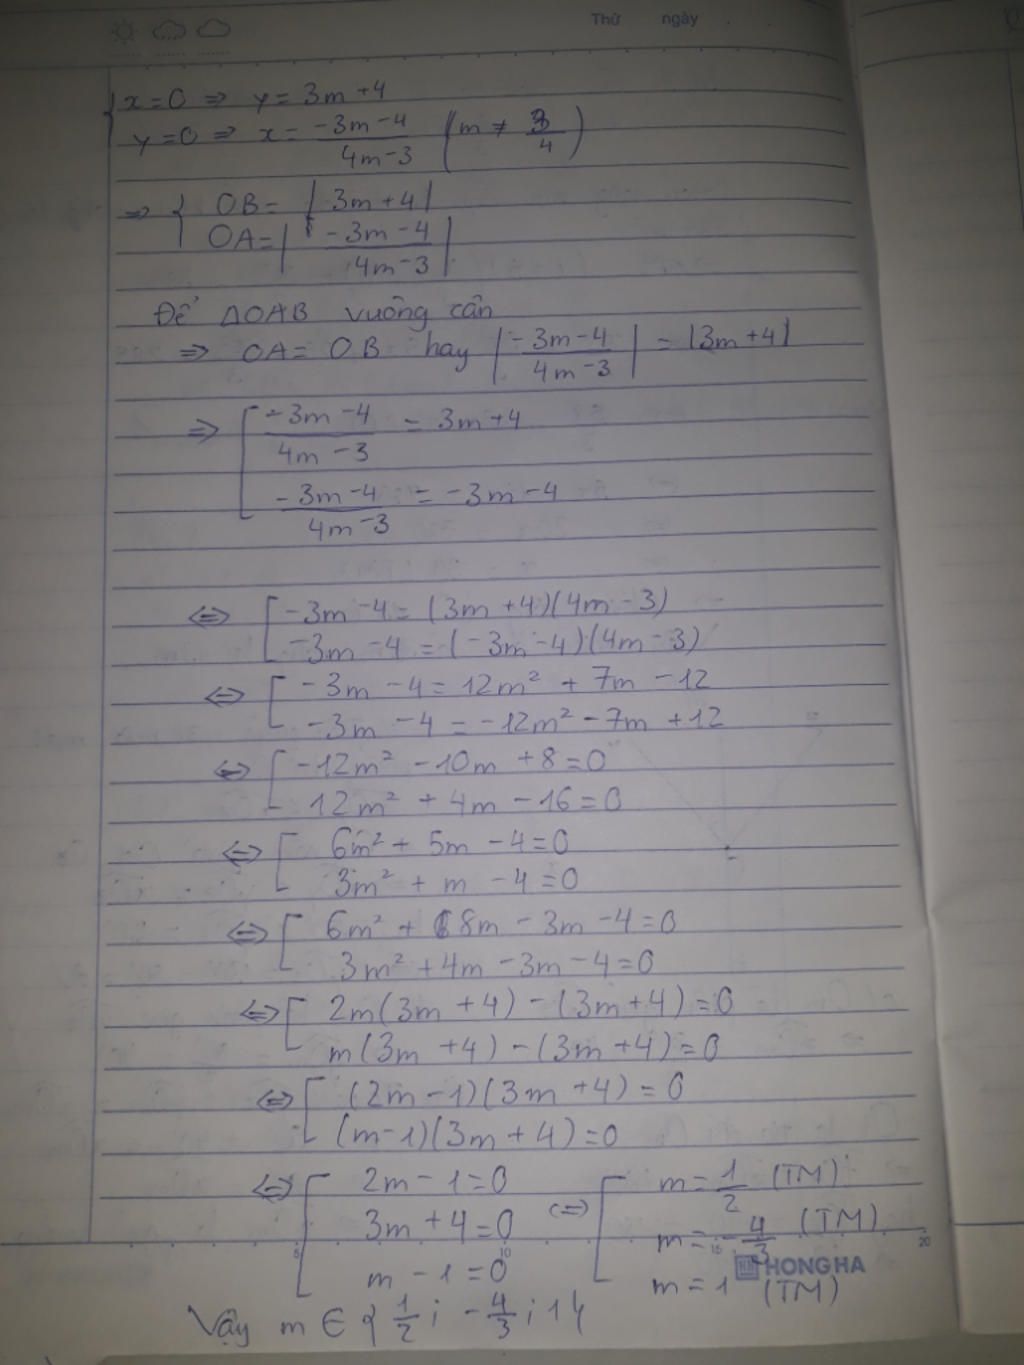 Thứ ngày
{ x = 0 => y = 3m + 4
y = 0 => x = (-3m - 4)/(4m - 3) (m ≠ 3/4)
=> { OB = |3m + 4|
OA = |(-3m - 4)/(4m - 3)|
Để ΔOAB vuông cân
=> OA = OB hay |(-3m - 4)/(4m - 3)| = |3m + 4|
=> [ (-3m - 4)/(4m - 3) = 3m + 4
(-3m - 4)/(4m - 3) = -3m - 4
<=> [ -3m - 4 = (3m + 4)(4m - 3)
-3m - 4 = (-3m - 4)(4m - 3)
<=> [ -3m - 4 = 12m² + 7m - 12
-3m - 4 = -12m² - 7m + 12
<=> [ -12m² - 10m + 8 = 0
12m² + 4m - 16 = 0
<=> [ 6m² + 5m - 4 = 0
3m² + m - 4 = 0
<=> [ 6m² + 8m - 3m - 4 = 0
3m² + 4m - 3m - 4 = 0
<=> [ 2m(3m + 4) - (3m + 4) = 0
m(3m + 4) - (3m + 4) = 0
<=> [ (2m - 1)(3m + 4) = 0
(m - 1)(3m + 4) = 0
<=> [ 2m - 1 = 0 <=> [ m = 1/2 (TM)
3m + 4 = 0 m = -4/3 (TM)
m - 1 = 0 m = 1 (TM)
5 10 15 20
HH HONG HA
Vậy m ∈ { 1/2 ; -4/3 ; 1 }